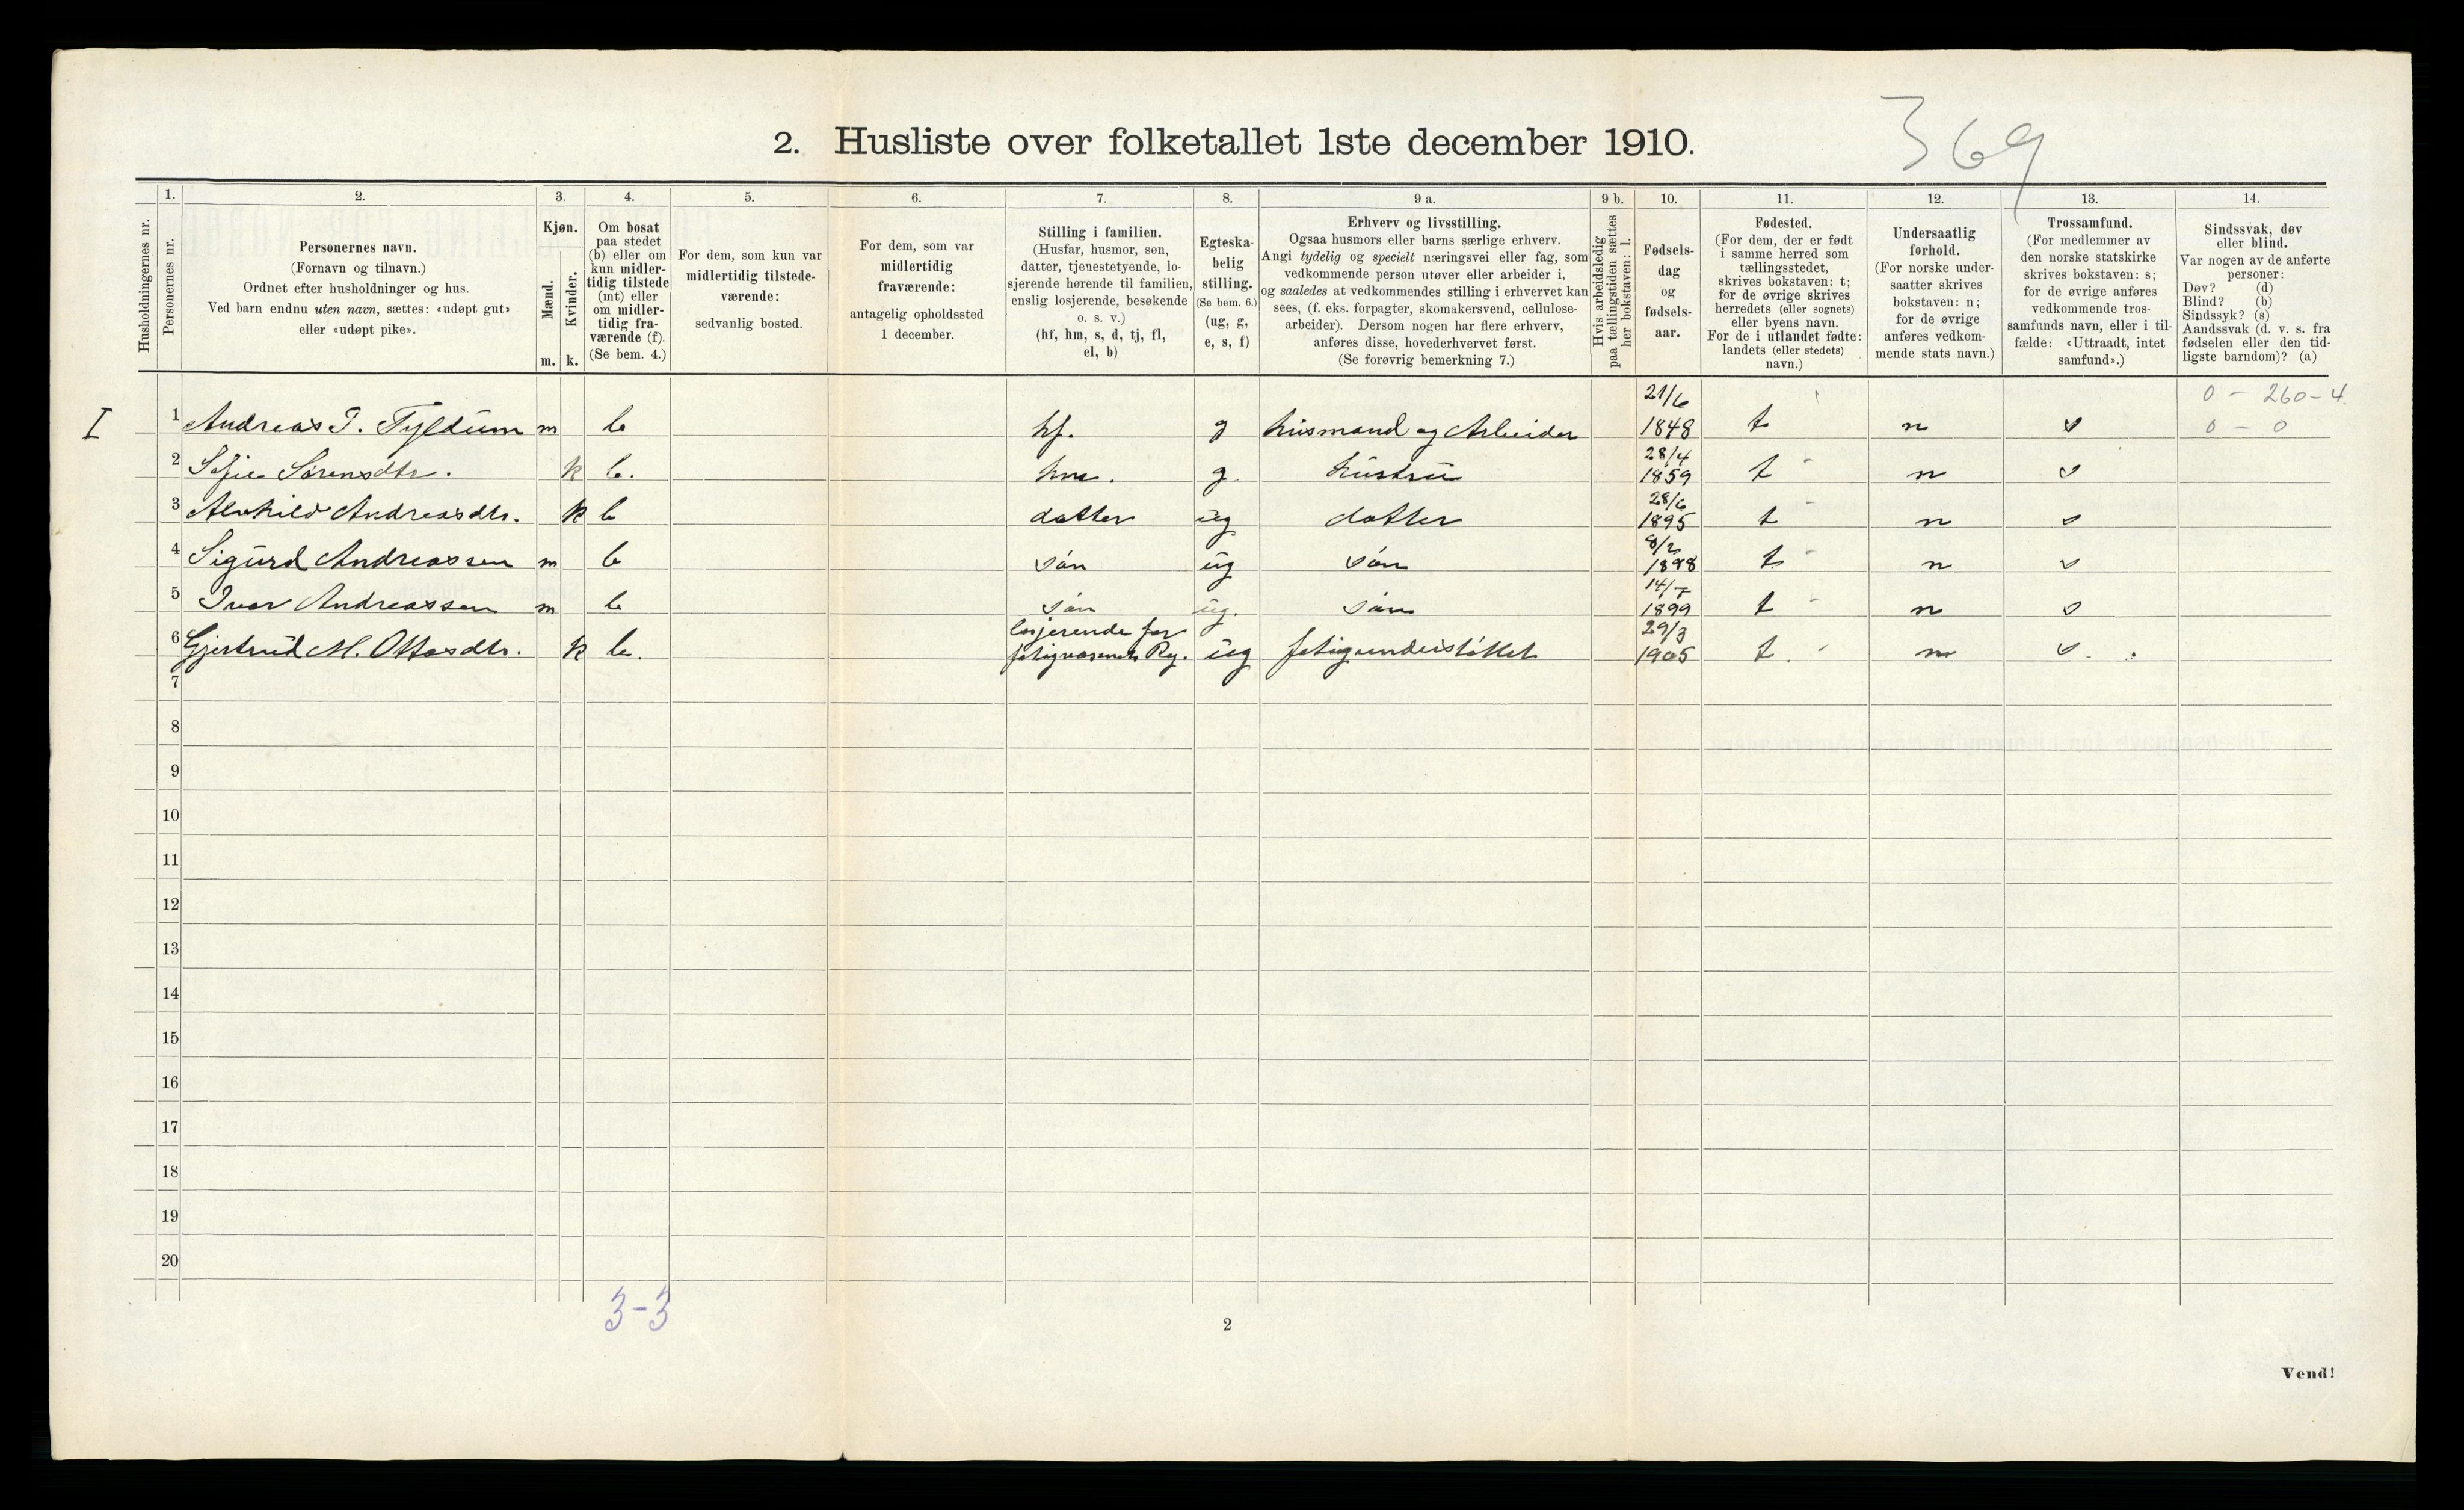 369
2. Husliste over folketallet 1ste december 1910.
Husholdningernes nr.
1. Personernes nr.
2. Personernes navn. (Fornavn og tilnavn.) Ordnet efter husholdninger og hus. Ved barn endnu uten navn, sættes: «udøpt gut» eller «udøpt pike».
3. Kjøn. Mænd. m. Kvinder. k.
4. Om bosat paa stedet (b) eller om kun midlertidig tilstede (mt) eller om midlertidig fraværende (f). (Se bem. 4.)
5. For dem, som kun var midlertidig tilstedeværende: sedvanlig bosted.
6. For dem, som var midlertidig fraværende: antagelig opholdssted 1 december.
7. Stilling i familien. (Husfar, husmor, søn, datter, tjenestetyende, losjerende hørende til familien, enslig losjerende, besøkende o. s. v.) (hf, hm, s, d, tj, fl, el, b)
8. Egteskabelig stilling. (Se bem. 6.) (ug, g, e, s, f)
9 a. Erhverv og livsstilling. Ogsaa husmors eller barns særlige erhverv. Angi tydelig og specielt næringsvei eller fag, som vedkommende person utøver eller arbeider i, og saaledes at vedkommendes stilling i erhvervet kan sees, (f. eks. forpagter, skomakersvend, cellulosearbeider). Dersom nogen har flere erhverv, anføres disse, hovederhvervet først. (Se forøvrig bemerkning 7.)
9 b. Hvis arbeidsledig paa tællingstiden sættes her bokstaven: l.
10. Fødselsdag og fødselsaar.
11. Fødested. (For dem, der er født i samme herred som tællingsstedet, skrives bokstaven: t; for de øvrige skrives herredets (eller sognets) eller byens navn. For de i utlandet fødte: landets (eller stedets) navn.)
12. Undersaatlig forhold. (For norske undersaatter skrives bokstaven: n; for de øvrige anføres vedkommende stats navn.)
13. Trossamfund. (For medlemmer av den norske statskirke skrives bokstaven: s; for de øvrige anføres vedkommende trossamfunds navn, eller i tilfælde: «Uttraadt, intet samfund».)
14. Sindssvak, døv eller blind. Var nogen av de anførte personer: Døv? (d) Blind? (b) Sindssyk? (s) Aandssvak (d. v. s. fra fødselen eller den tidligste barndom)? (a)
0 - 260-4
0 - 0
I 1 Andreas P. Tyldum m b hf. g husmand og Arbeider 21/6 1848 t n s
2 Sofie Sørensdtr. k b. hm. g. hustru 28/4 1859 t n s
3 Alvhild Andreasdtr. k b datter ug datter 28/6 1895 t n s
4 Sigurd Andreassen m b søn ug søn 8/2 1898 t n s
5 Ivar Andreassen m b søn ug. søn 14/7 1899 t n s
6 Gjertrud M. Ottosdtr. k b. losjerende for fatigvæsenets Rg. ug fatigunderstøttet 29/3 1905 t. n s
7
8
9
10
11
12
13
14
15
16
17
18
19
20
3-3
2
Vend!